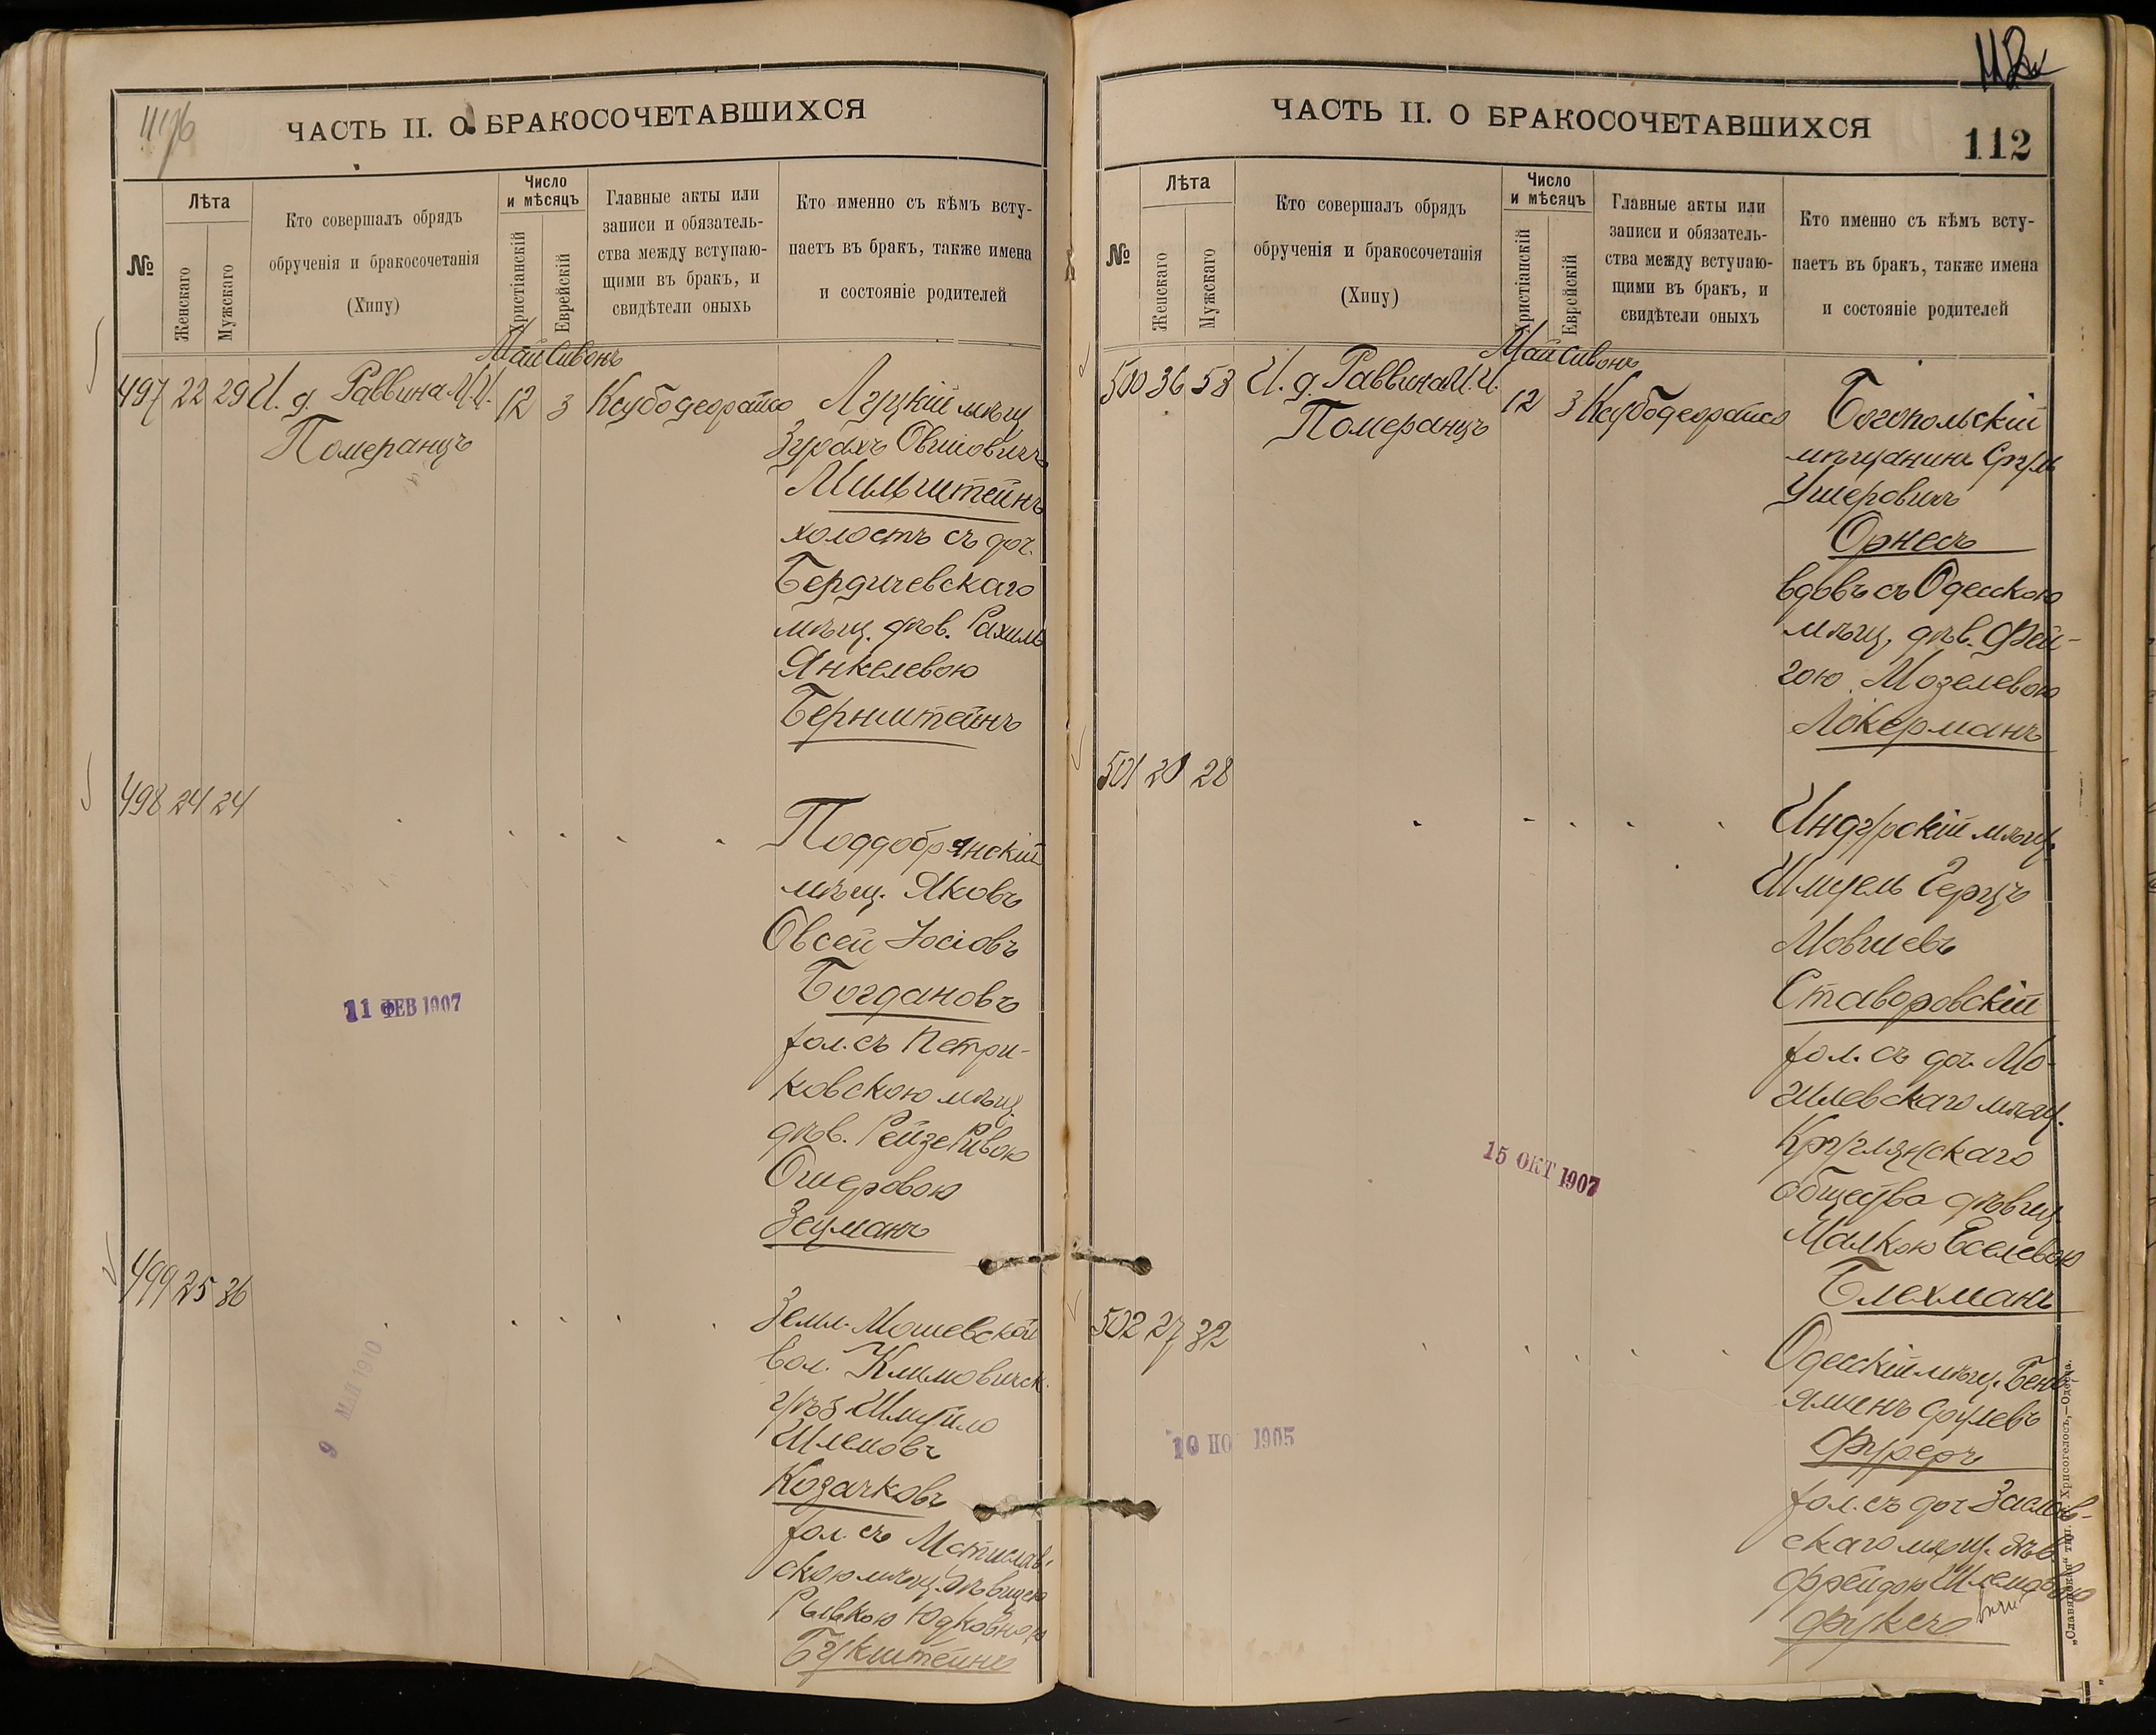 ЧАСТЬ II. О БРАКОСОЧЕТАВШИХСЯ
№
Лѣта
Женскаго
Мужскаго
Кто совершалъ обрядъ
обрученія и бракосочетанія
(Хипу)
Число
и мѣсяцъ
Христіанскій
Еврейскій
Главные акты или
записи и обязатель-
ства между вступаю-
щими въ бракъ, и
свидѣтели оныхъ
Кто именно съ кѣмъ всту-
паетъ въ бракъ, также имена
и состояніе родителей
Май Сивонъ
497 22 29 И. д. Раввина М.И. 12 3 Луцкій мѣщ
Померанцъ
Зурахъ Овшіовичъ
Мильштейнъ
холостъ съ доч.
Бердичевскаго
мѣщ. дѣв. Рахиль
Янкелевою
Бернштейнъ
498 24 24
Поддобрянскій
мѣщ. Яковъ
Овсей Іосіовъ
Богдановъ
хол. съ Петри-
ковскою мѣщ.
дѣв. Рейзе Ривою
Ошеровою
Зецманъ
11 ФЕВ 1907
499 25 36
Земл. Мошевской
вол. Климовичск.
уѣз. Шмуйло
Шлемовъ
Козачковъ
хол. съ Мстислав-
скою мѣщ. дѣвицею
Рывкою Юдковною
Букштейнъ
9 МАЙ 1910
ЧАСТЬ II. О БРАКОСОЧЕТАВШИХСЯ
112
№
Лѣта
Женскаго
Мужскаго
Кто совершалъ обрядъ
обрученія и бракосочетанія
(Хипу)
Число
и мѣсяцъ
Христіанскій
Еврейскій
Главные акты или
записи и обязатель-
ства между вступаю-
щими въ бракъ, и
свидѣтели оныхъ
Кто именно съ кѣмъ всту-
паетъ въ бракъ, также имена
и состояніе родителей
Май Сивонъ
500 36 53 И. д. Раввина М.И. 12 3 Богопольскій
Померанцъ
мѣщанинъ Сруль
Ушеровичъ
Орнесъ
вдовъ съ Одесскою
мѣщ, дѣв. Фей-
гою Мозелевою
Локерманъ
501 20 28
Индурскій мѣщ.
Шмуель Герцъ
Мовшевъ
Ставоровскій
хол. съ доч. Мо-
гилевскаго мѣщ.
Круглянскаго
общества дѣвиц.
Малкою Еселевою
Блехманъ
15 ОКТ 1907
502 27 32
Одесскій мѣщ. Бень-
яминъ Срулевъ
Фуреръ
хол. съ доч Заслав-
скаго мѣщ. дѣв.
Фрейдою Шлемовою
Фуксъ
10 НО 1905
„Славянская“ тип. Н. Хрисогелосъ,—Одесса.